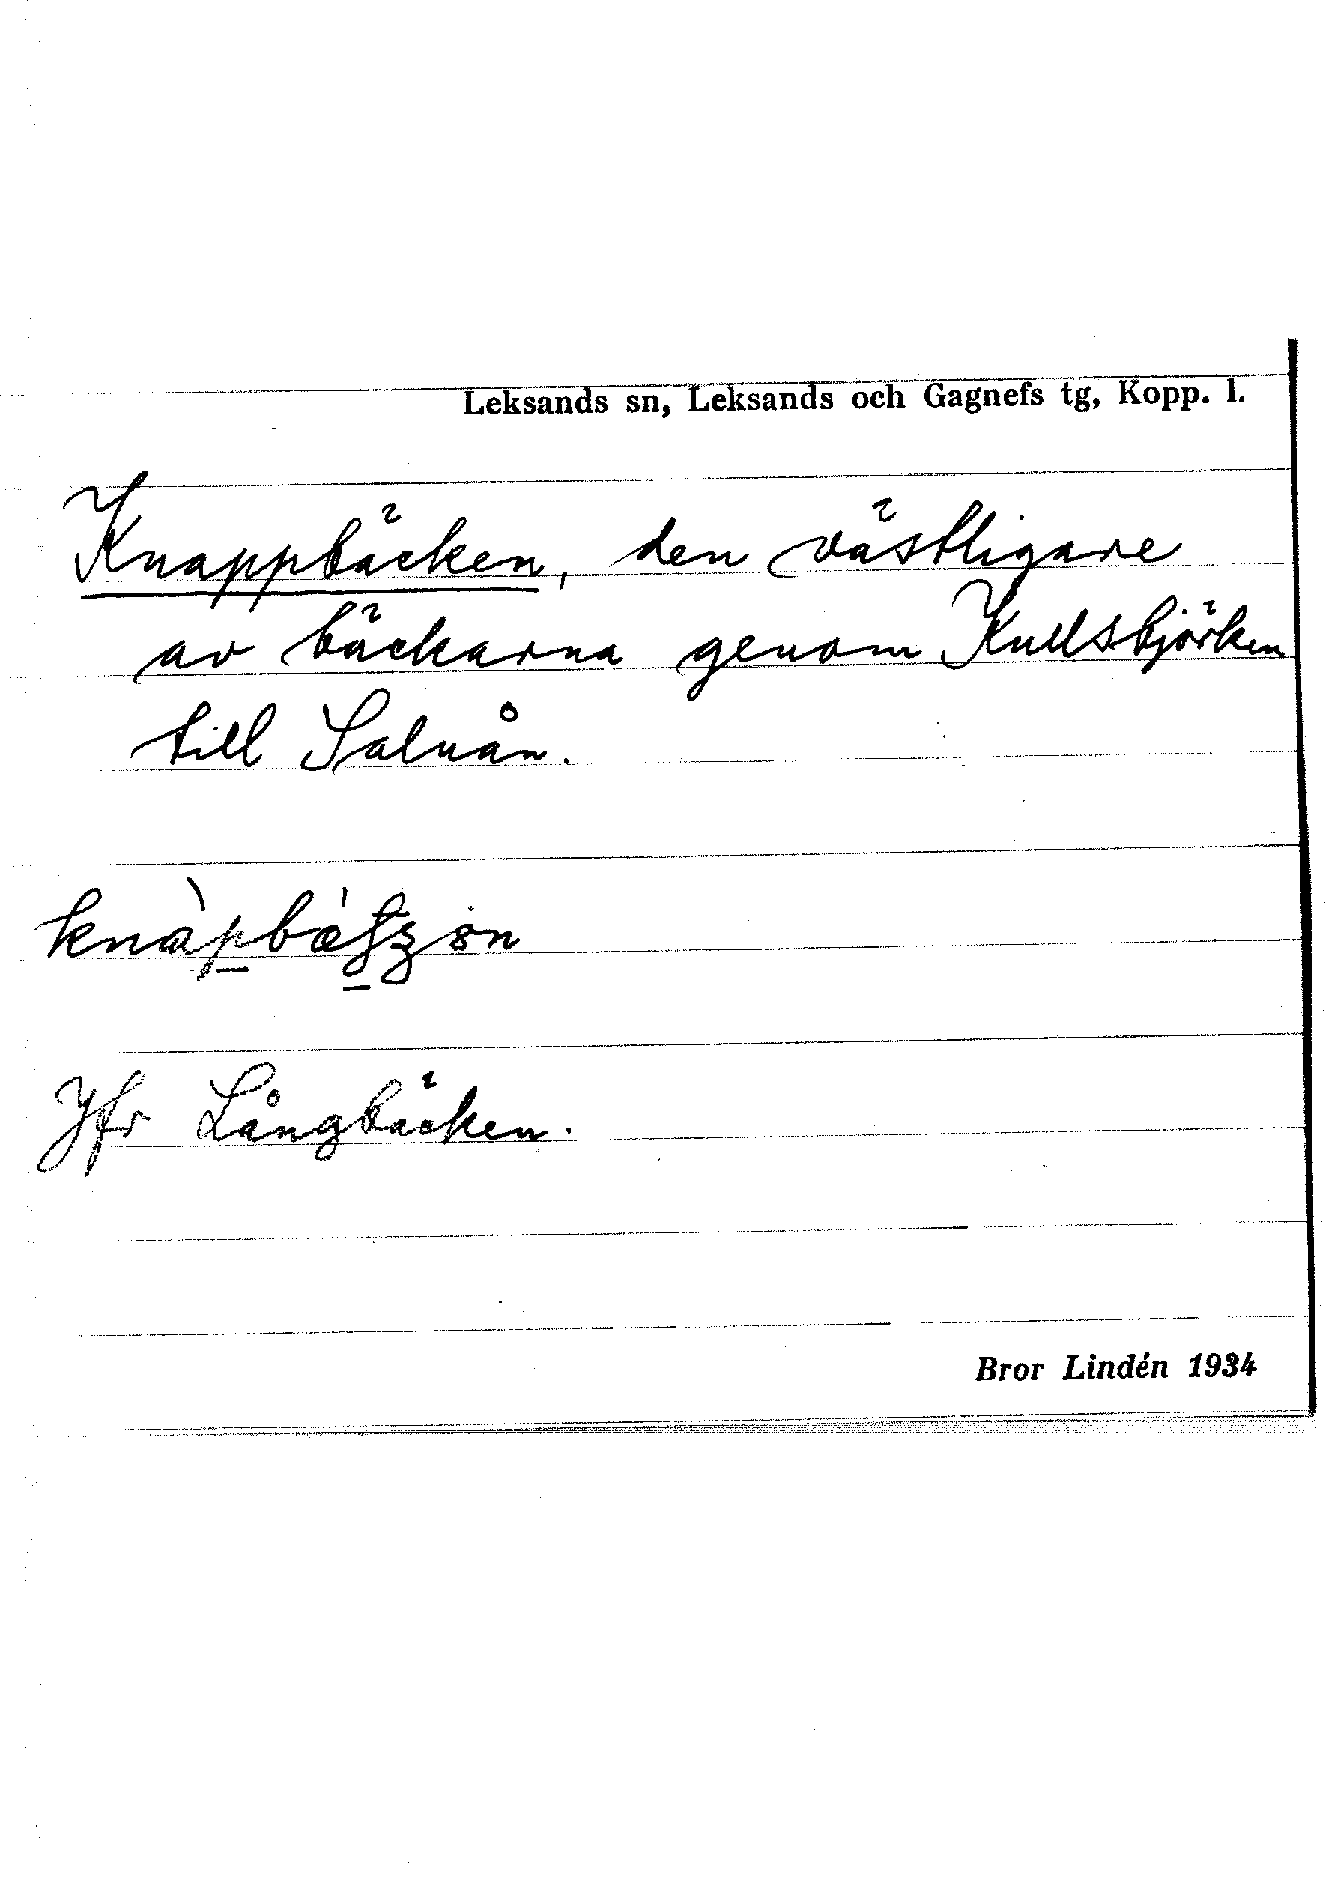 Leksands sn, Leksands och Gagnefs tg, Kopp. l.
Knappbäcken, den västligare
av bäckarna genom Kullsbjörken
till Saluån.
Jfr Långbäcken.
Bror Lindén 1934